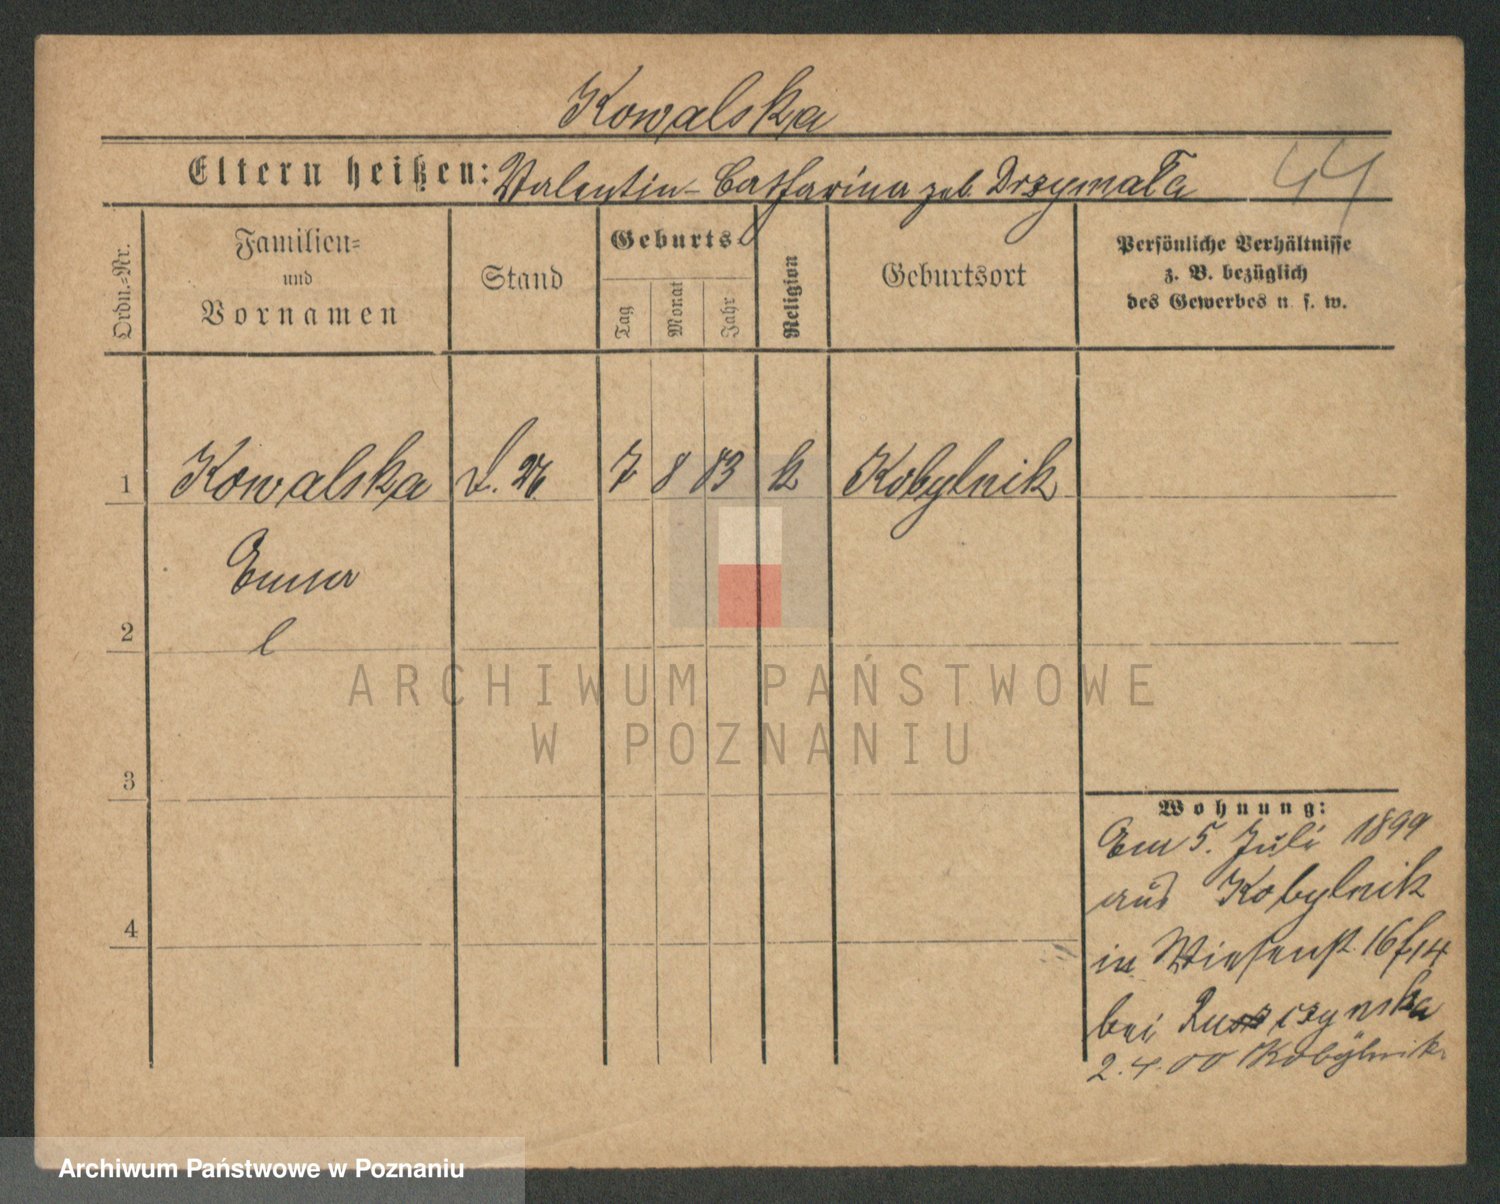 Kowalska
Eltern heißen: Valentin - Catharina geb. Drzymała
44
Ordn.-Nr.
Familien-
und
Vornamen
Stand
Geburts-
Tag
Monat
Jahr
Religion
Geburtsort
Persönliche Verhältnisse
z. B. bezüglich
des Gewerbes u. s. w.
1 Kowalska 7 8 83 k Kobylnik
2
3
4
Wohnung:
5. Juli 1899
aus Kobylnik
in Wiesenst. 16
bei
2.4.00 Kobylnik
ARCHIWUM PAŃSTWOWE
W POZNANIU
Archiwum Państwowe w Poznaniu